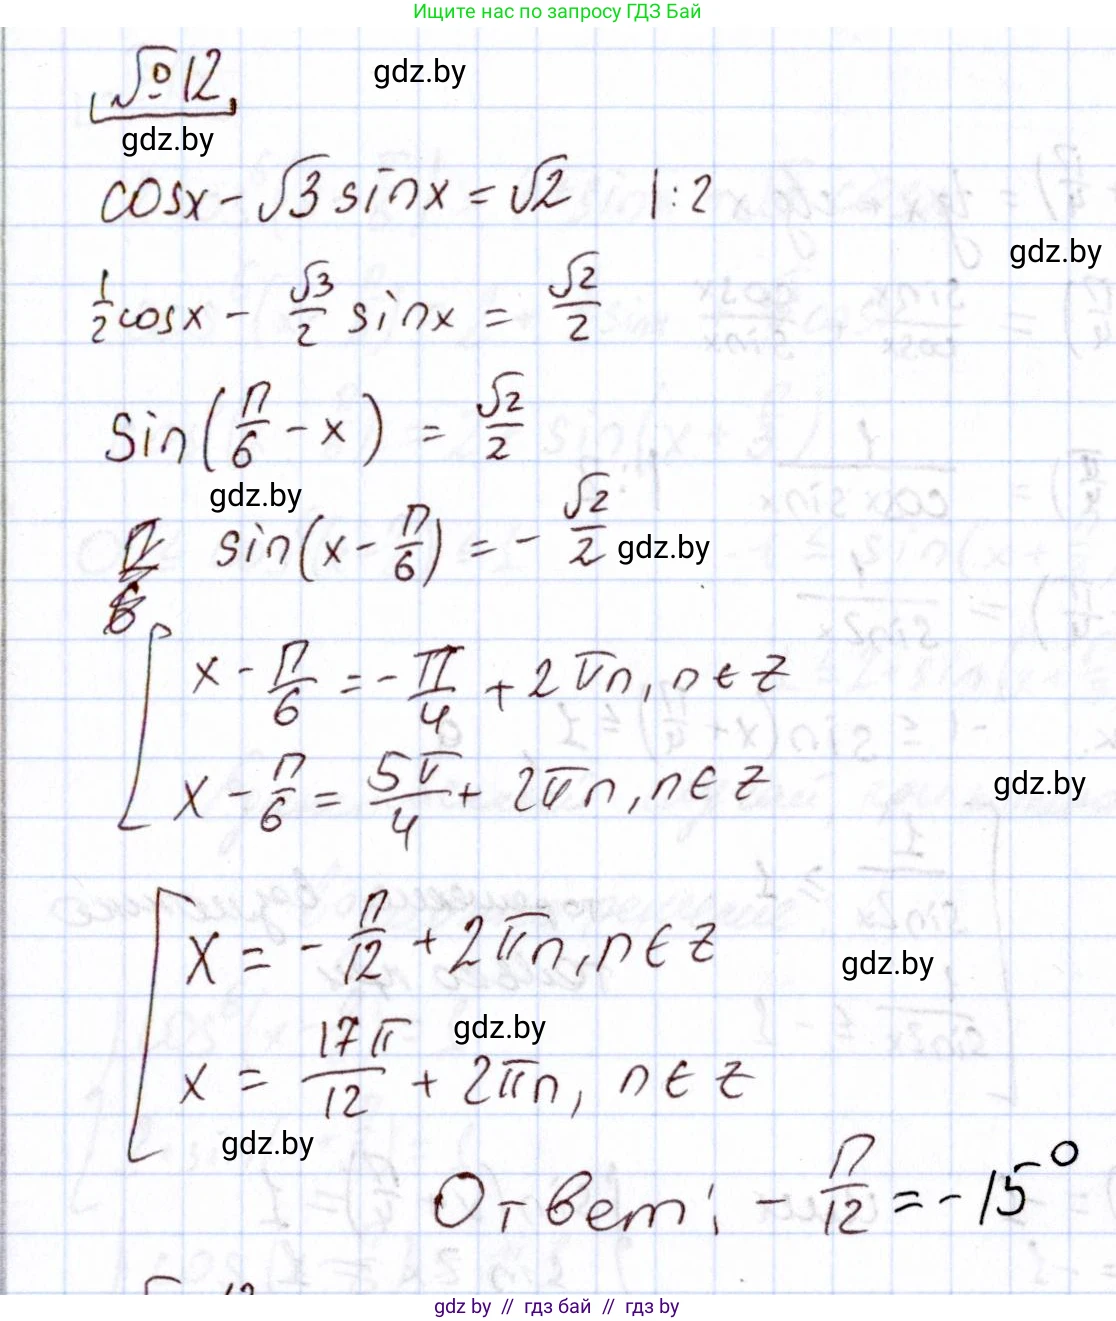 Ищите нас по запросу ГДЗ Бай
№12
gdz.by
gdz.by
cosx - √3 sinx = √2 | : 2
gdz.by
1/2 cosx - √3/2 sinx = √2/2
sin(π/6 - x) = √2/2
gdz.by
sin(x - π/6) = - √2/2
gdz.by
x - π/6 = - π/4 + 2πn, n ∈ Z
x - π/6 = 5π/4 + 2πn, n ∈ Z
gdz.by
x = - π/12 + 2πn, n ∈ Z
gdz.by
gdz.by
x = 17π/12 + 2πn, n ∈ Z
gdz.by
Ответ: - π/12 = -15°
gdz.by // гдз бай // гдз by